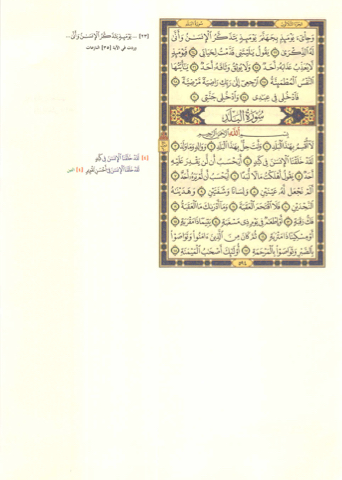 وَجِاْىٓءَ يَوْمَئِذٍۭ بِجَهَنَّمَ ۚ يَوْمَئِذٍ يَتَذَكَّرُ ٱلْإِنسَٰنُ وَأَنَّىٰ
لَهُ ٱلذِّكْرَىٰ ﴿٢٣﴾ يَقُولُ يَٰلَيْتَنِى قَدَّمْتُ لِحَيَاتِى ﴿٢٤﴾ فَيَوْمَئِذٍ
لَّا يُعَذِّبُ عَذَابَهُۥٓ أَحَدٌ ﴿٢٥﴾ وَلَا يُوثِقُ وَثَاقَهُۥٓ أَحَدٌ ﴿٢٦﴾ يَٰٓأَيَّتُهَا
ٱلنَّفْسُ ٱلْمُطْمَئِنَّةُ ﴿٢٧﴾ ٱرْجِعِىٓ إِلَىٰ رَبِّكِ رَاضِيَةً مَّرْضِيَّةً ﴿٢٨﴾
فَٱدْخُلِى فِى عِبَٰدِى ﴿٢٩﴾ وَٱدْخُلِى جَنَّتِى ﴿٣٠﴾
سُورَةُ الْبَلَدِ
بِسْمِ ٱللَّهِ ٱلرَّحْمَٰنِ ٱلرَّحِيمِ
لَآ أُقْسِمُ بِهَٰذَا ٱلْبَلَدِ ﴿١﴾ وَأَنتَ حِلٌّۢ بِهَٰذَا ٱلْبَلَدِ ﴿٢﴾ وَوَالِدٍ وَمَا وَلَدَ ﴿٣﴾
لَقَدْ خَلَقْنَا ٱلْإِنسَٰنَ فِى كَبَدٍ ﴿٤﴾ أَيَحْسَبُ أَن لَّن يَقْدِرَ عَلَيْهِ
أَحَدٌ ﴿٥﴾ يَقُولُ أَهْلَكْتُ مَالًا لُّبَدًا ﴿٦﴾ أَيَحْسَبُ أَن لَّمْ يَرَهُۥٓ أَحَدٌ ﴿٧﴾
أَلَمْ نَجْعَل لَّهُۥ عَيْنَيْنِ ﴿٨﴾ وَلِسَانًا وَشَفَتَيْنِ ﴿٩﴾ وَهَدَيْنَٰهُ
ٱلنَّجْدَيْنِ ﴿١٠﴾ فَلَا ٱقْتَحَمَ ٱلْعَقَبَةَ ﴿١١﴾ وَمَآ أَدْرَىٰكَ مَا ٱلْعَقَبَةُ ﴿١٢﴾
فَكُّ رَقَبَةٍ ﴿١٣﴾ أَوْ إِطْعَٰمٌ فِى يَوْمٍ ذِى مَسْغَبَةٍ ﴿١٤﴾ يَتِيمًا ذَا مَقْرَبَةٍ ﴿١٥﴾
أَوْ مِسْكِينًا ذَا مَتْرَبَةٍ ﴿١٦﴾ ثُمَّ كَانَ مِنَ ٱلَّذِينَ ءَامَنُوا۟ وَتَوَاصَوْا۟
بِٱلصَّبْرِ وَتَوَاصَوْا۟ بِٱلْمَرْحَمَةِ ﴿١٧﴾ أُو۟لَٰٓئِكَ أَصْحَٰبُ ٱلْمَيْمَنَةِ ﴿١٨﴾
[٢٣] ... يَوْمَئِذٍ يَتَذَكَّرُ ٱلْإِنسَٰنُ وَأَنَّىٰ ...
وردت في الآية [٣٥] النازعات
[٤] لَقَدْ خَلَقْنَا ٱلْإِنسَٰنَ فِى كَبَدٍ
لَقَدْ خَلَقْنَا ٱلْإِنسَٰنَ فِىٓ أَحْسَنِ تَقْوِيمٍ [٤] التين